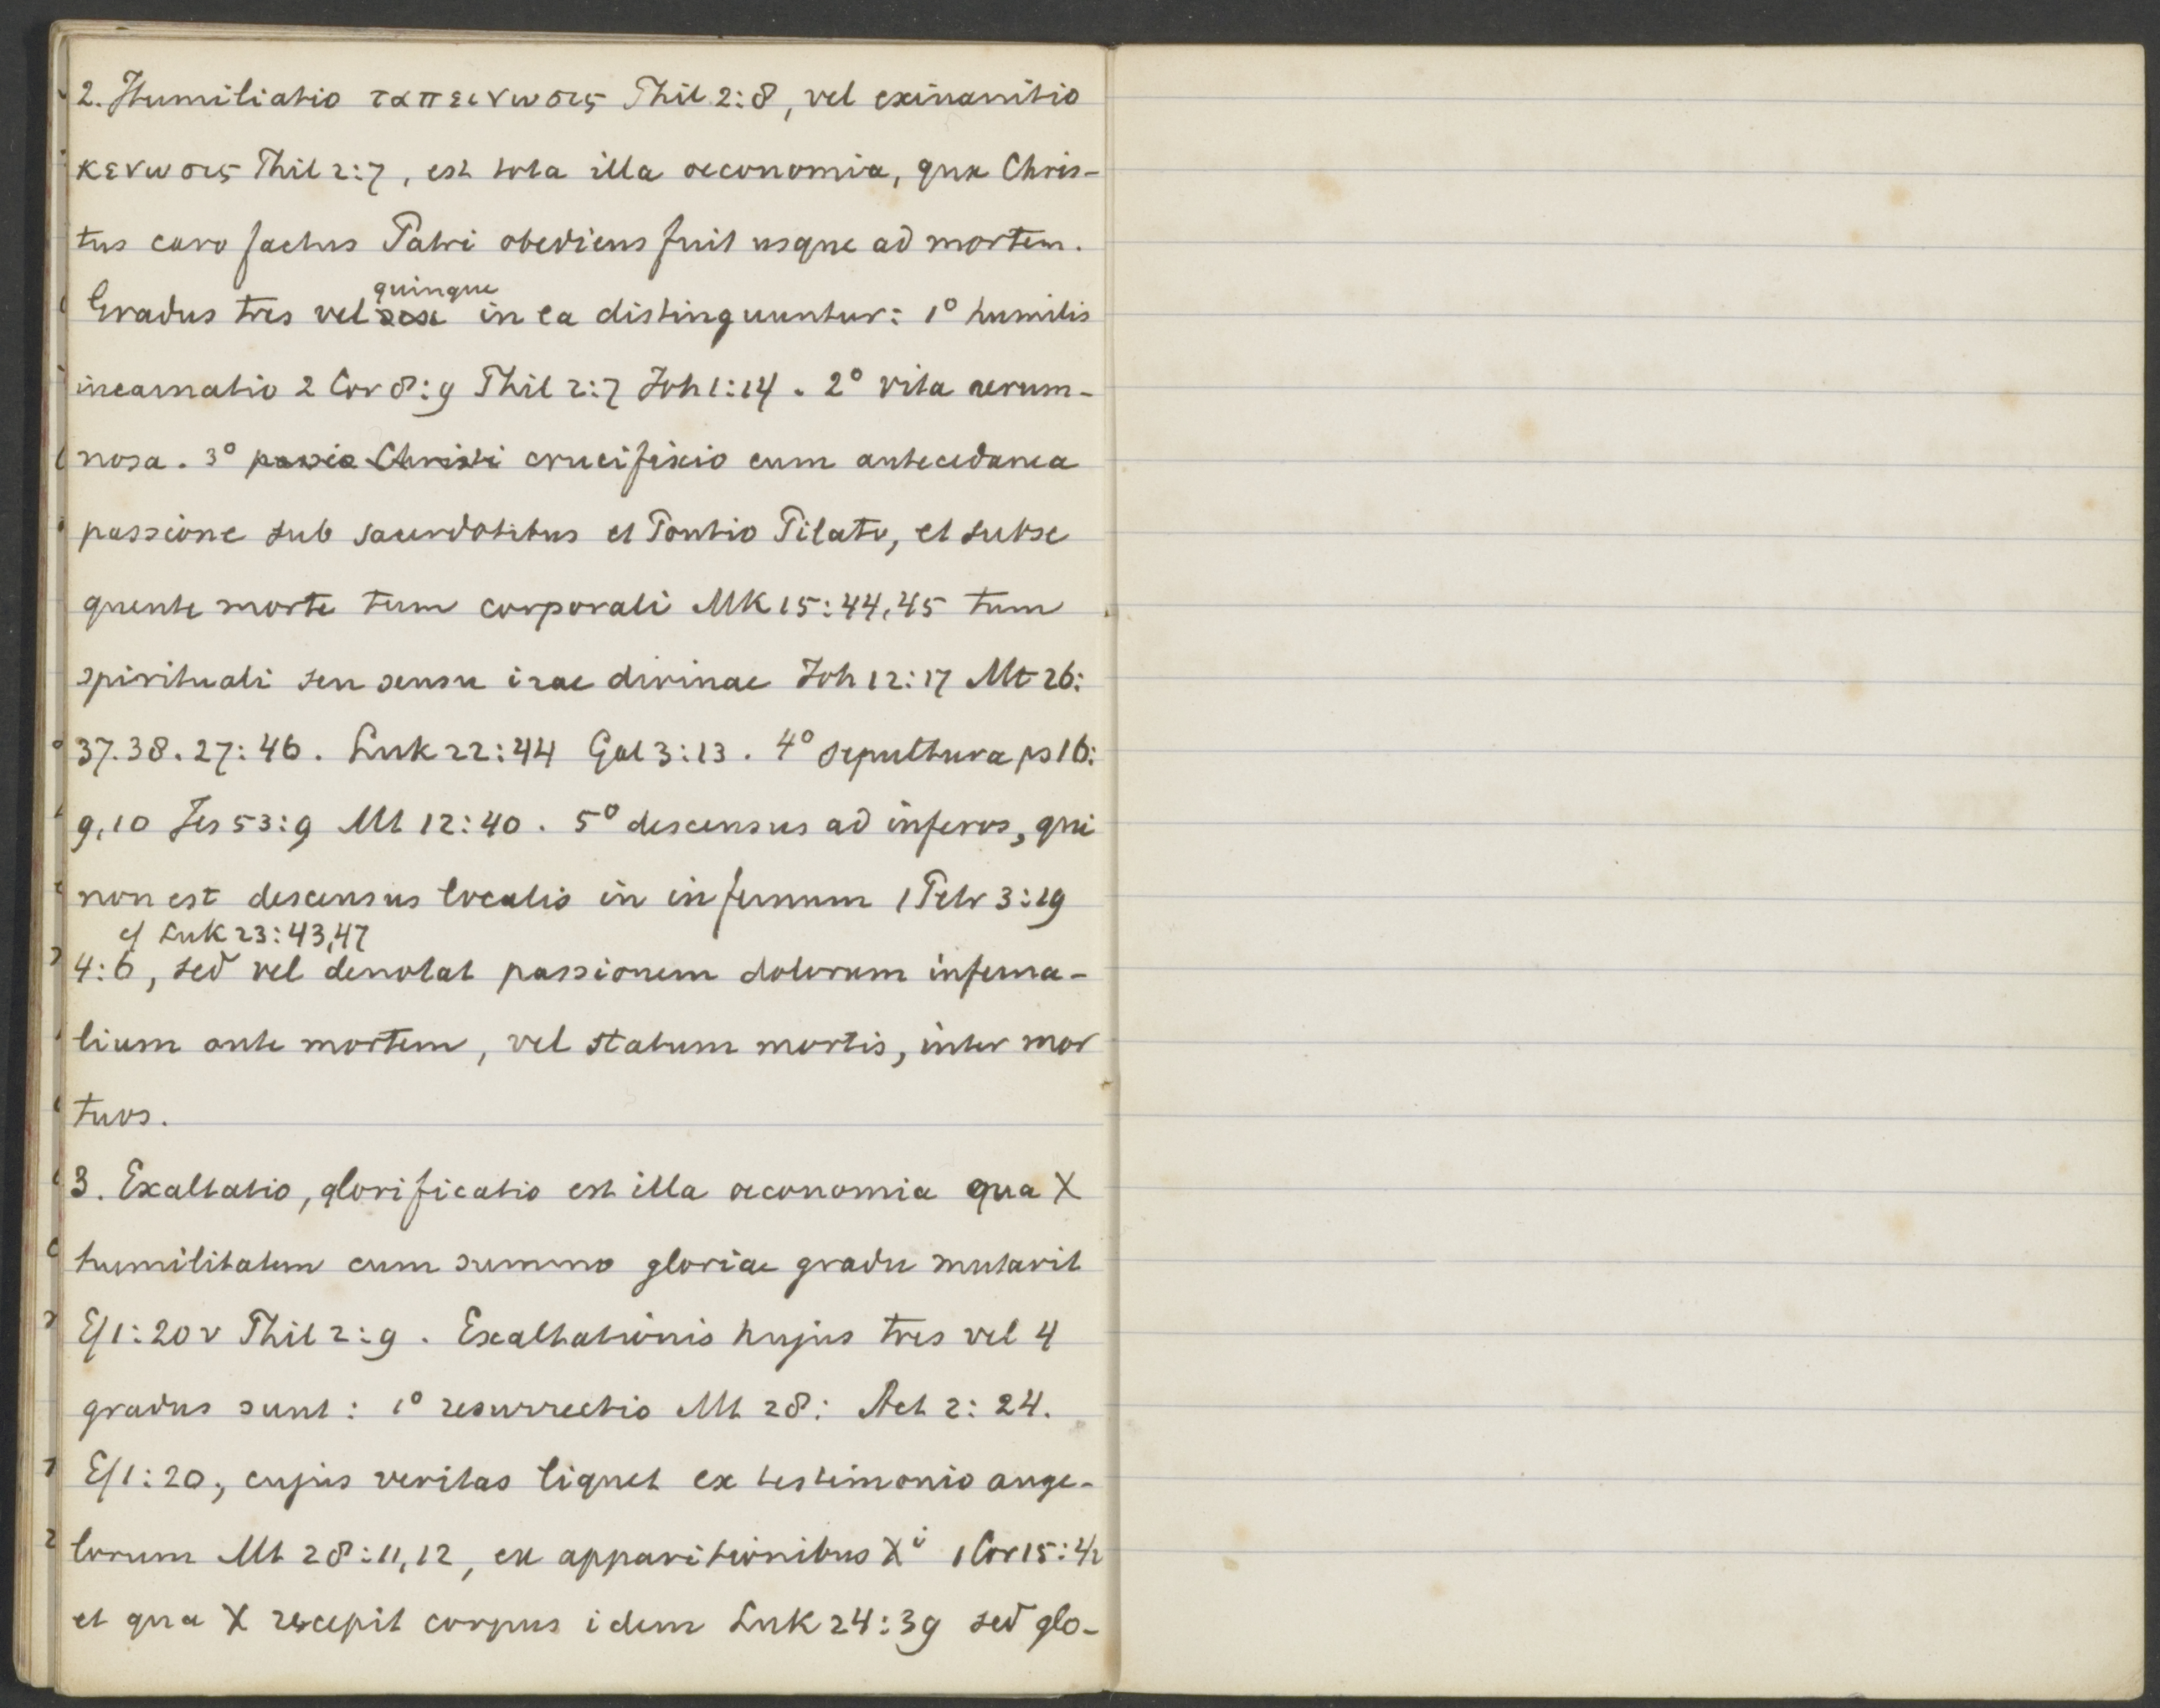 2. Humiliatio ταπεινωσις Phil 2:8, vel exinanitio
κενωσις Phil 2:7, est tota illa oeconomia, qua Chris-
tus caro factus Patri obediens fuit usque ad mortem.
quinque
Gradus tres vel in ea distinguuntur: 1° humilis
incarnatio 2 Cor 8:9 Phil 2:7 Joh 1:14. 2° vita aerum-
nosa. 3° passio Christi crucifixio cum antecedanea
passione sub sacerdotibus et Pontio Pilato, et subse
quente morte tum corporali MK 15:44,45 tum
spirituali seu sensu irae divinae Joh 12:17 Mt 26:
37.38. 27:46. Luk 22:44 Gal 3:13. 4° sepultura ps 16:
9,10 Jes 53:9 Mt 12:40. 5° descensus ad inferos, qui
non est descensus localis in infernum 1 Petr 3:19
cf Luk 23:43,47
4:6, sed vel denotat passionem dolorum inferna-
lium ante mortem, vel statum mortis, inter mor
tuos.
3. Exaltatio, glorificatio est illa oeconomia qua X
humilitatem cum summo gloriae gradu mutavit
Ef 1:20v Phil 2:9. Exaltationis hujus tres vel 4
gradus sunt: 1° resurrectio Mt 28: Act 2: 24.
Ef 1:20, cujus veritas liquet ex testimonio ange-
lorum Mt 28:11,12, ex apparitionibus Xi 1 Cor 15:
et qua X recepit corpus idem Luk 24:39 sed glo-